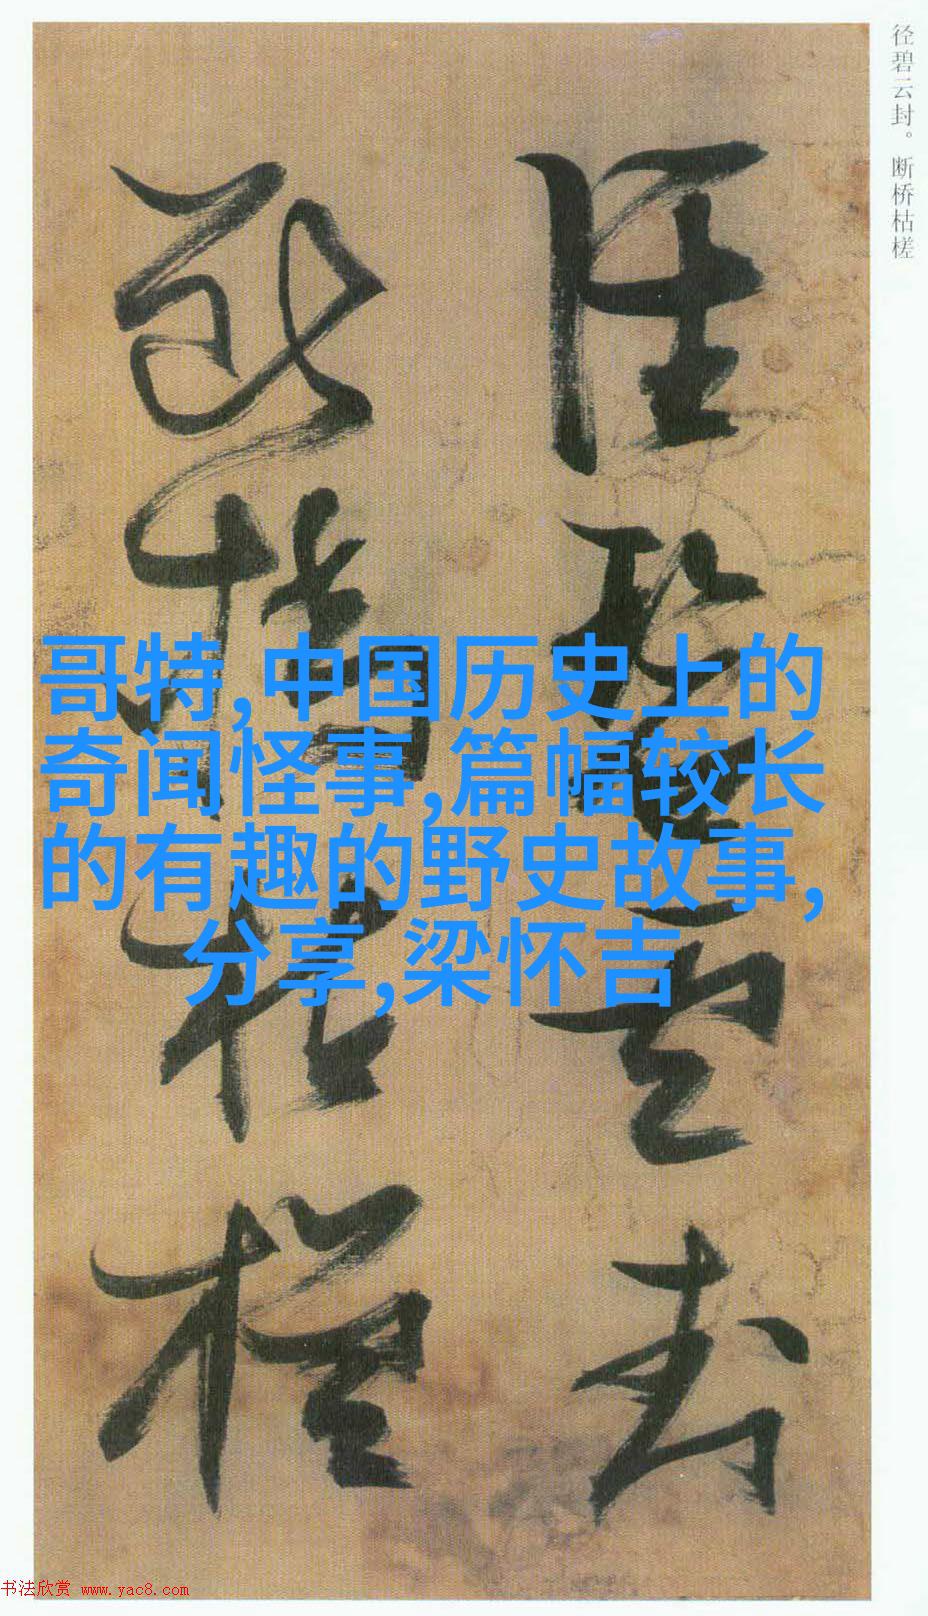 径碧云封。断桥枯槎
径碧云封
断桥枯槎
哥特,中国历史上的
奇闻怪事,篇幅较长
的有趣的野史故事,
分享,梁怀吉
书法欣赏 www.yac8.com